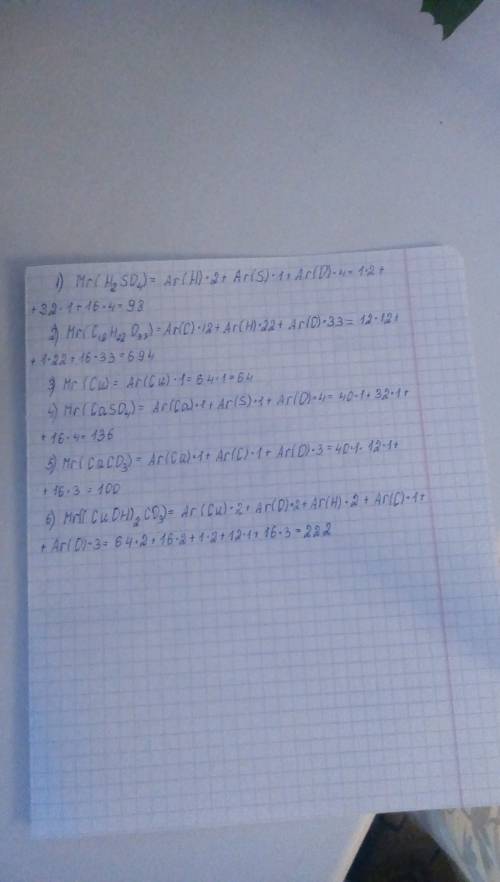 1) Mr(H₂SO₄)= Ar(H)·2+ Ar(S)·1+Ar(O)·4=1·2+
+32·1+16·4=98
2) Mr(C₁₂H₂₂O₃₃)=Ar(C)·12+Ar(H)·22+Ar(O)·33=12·12+
+1·22+16·33=694
3) Mr(Cu)=Ar(Cu)·1=64·1=64
4) Mr(CaSO₄)= Ar(Ca)·1+Ar(S)·1+Ar(O)·4=40·1+32·1+
+16·4=136
5) Mr(CaCO₃)= Ar(Ca)·1+Ar(C)·1+Ar(O)·3=40·1·12·1+
+16·3=100
6) Mr((CuOH)₂CO₃)= Ar(Cu)·2+Ar(O)·2+Ar(H)·2+Ar(C)·1+
+Ar(O)·3=64·2+16·2+1·2+12·1+16·3=222